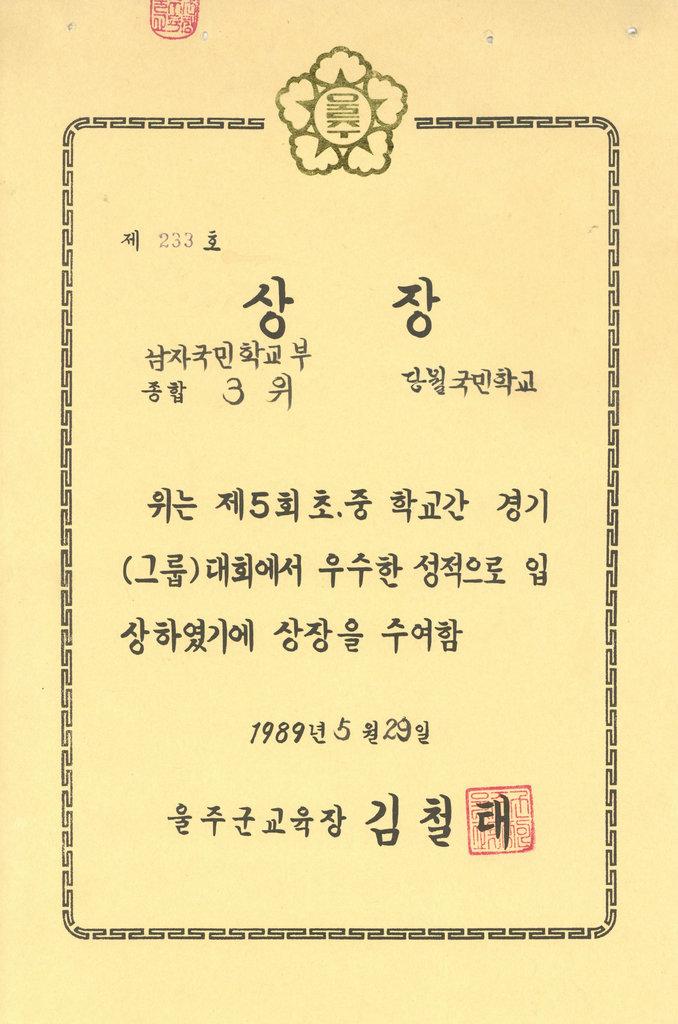 울주
제 233 호
상 장
남자국민학교부
종합 3 위
당월국민학교
위는 제5회 초.중 학교간 경기
(그룹)대회에서 우수한 성적으로 입
상하였기에 상장을 수여함
1989년 5월 29일
울주군교육장 김철태